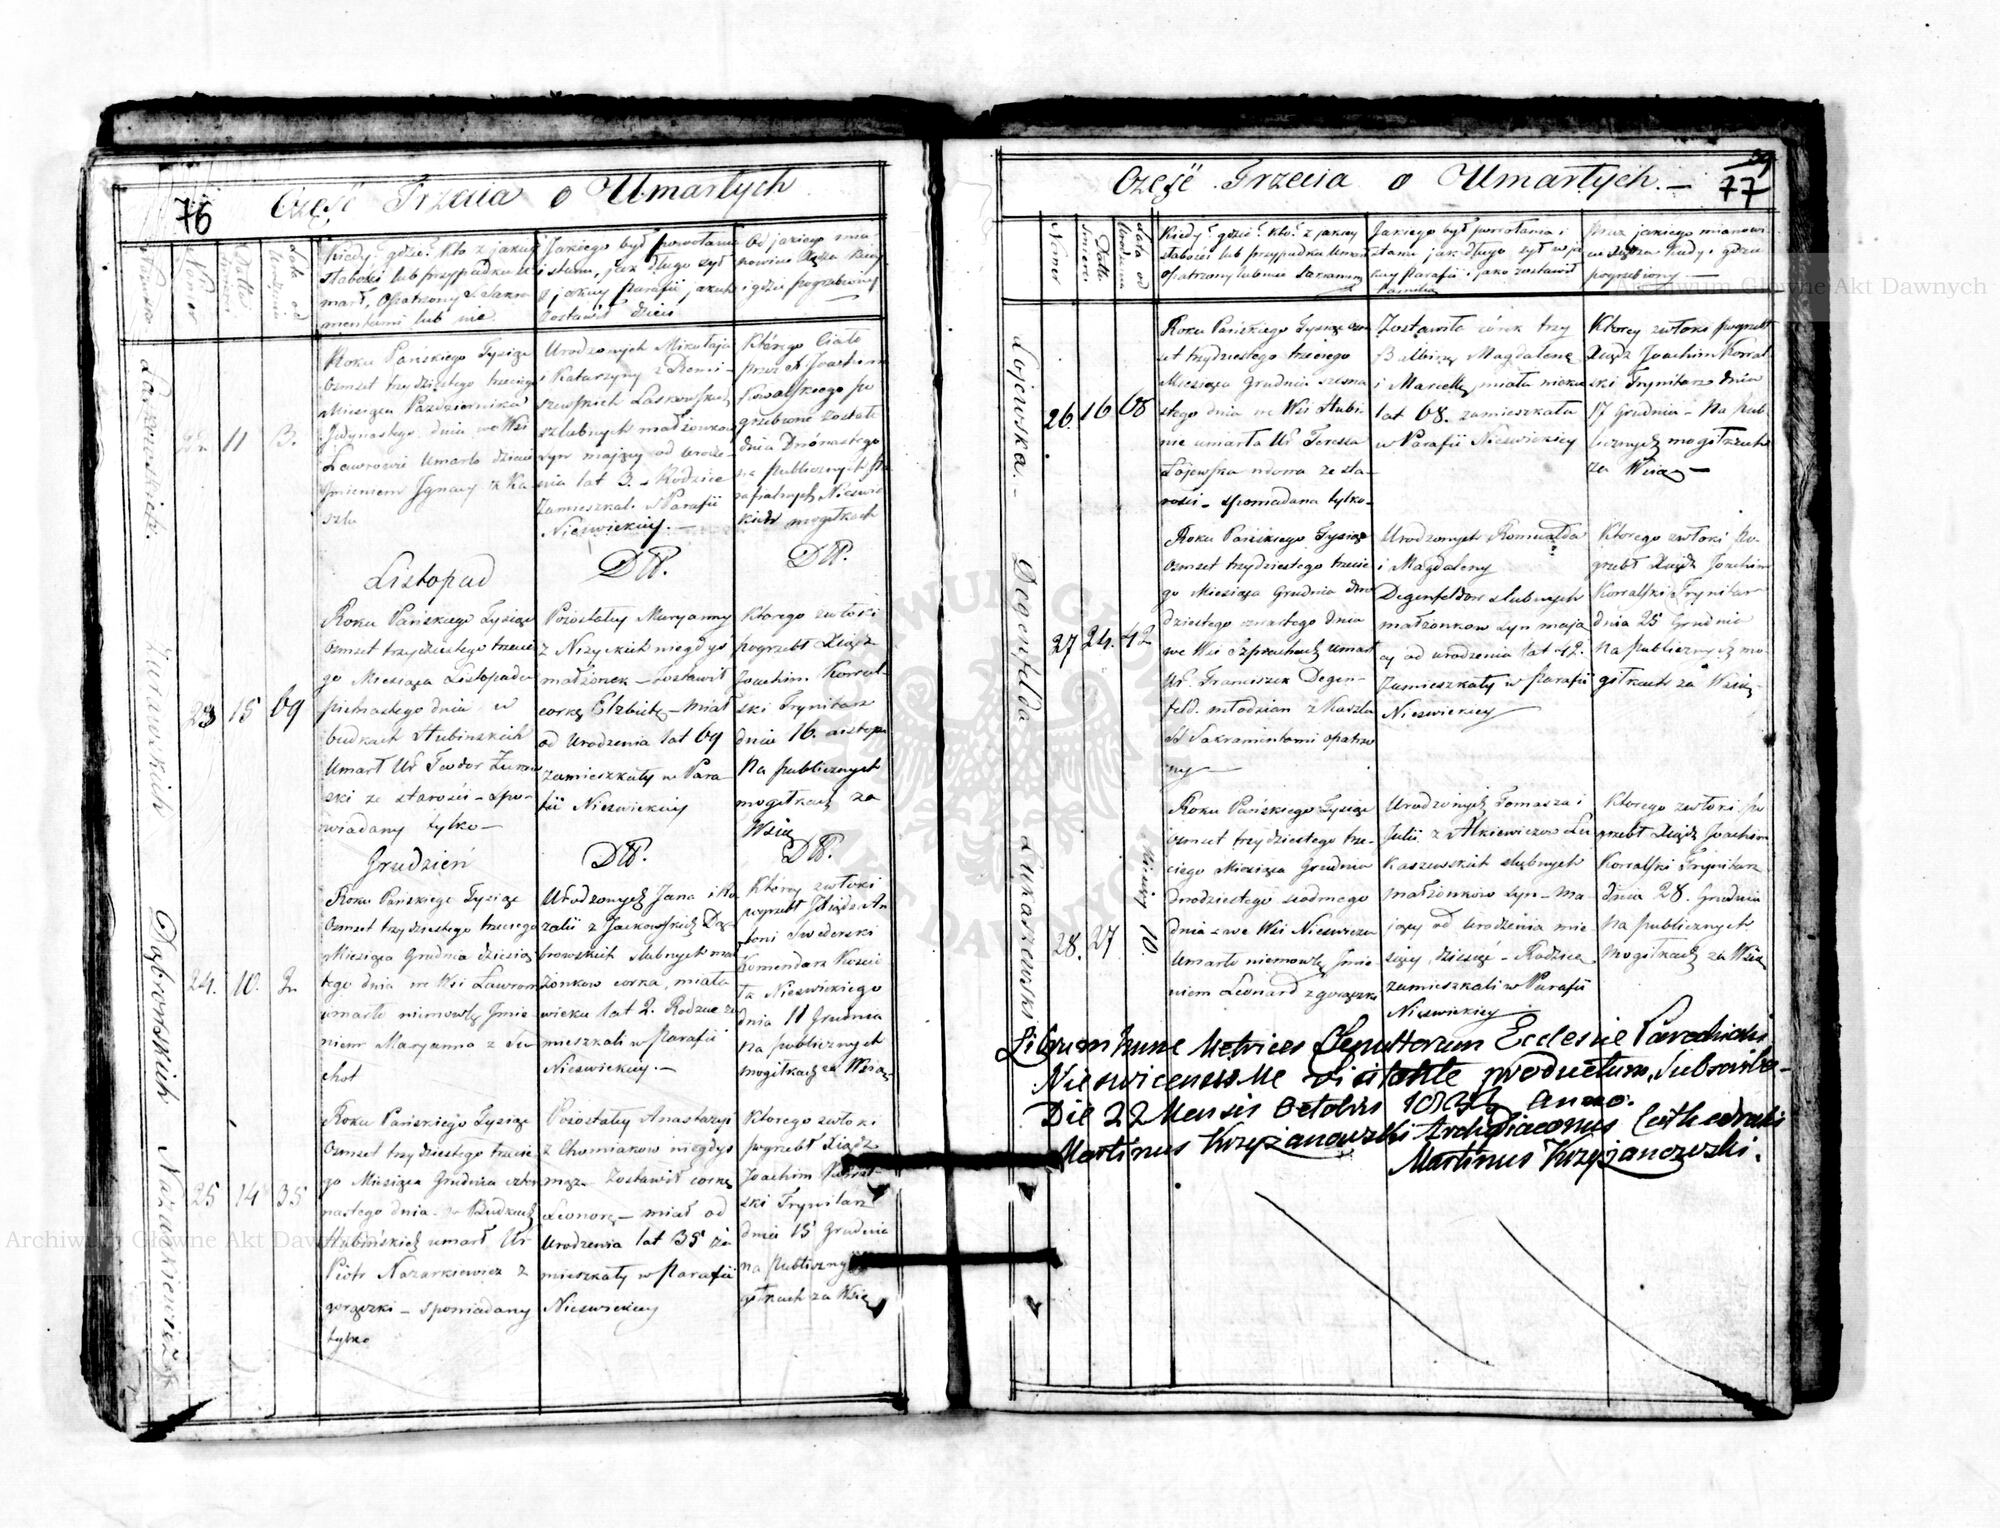 76
Cześć Trzecia o Umarłych
Nazwisko
Nomer
Datta śmierci
Lata od Urodzenia
Kiedy? gdzie? Kto z jakiej
słabości lub przypadku u-
marł, Opatrzony S. Sakra-
mentami lub nie.
Jakiego był powołania
i stanu, jak długo żył
w jakiey Parafii jakich
zostawił dzieci
Od jakiego mia-
nowicie Xiędza kiedy
i gdzie pogrzebiony
Laskowskich.
22. 11 3.
Roku Pańskiego Tysiąc
osmset trzydziestego trzeciego
Miesiąca Pazdziernika
Jedynastego dnia we Wsi
Ławrowi Umarło dziecie
Jmieniem Jgnacy z Ka
szlu
Urodzonych Mikołaja
i Katarzyny z
szewskich Laskowskich
szlubnych małżonkow
syn maiący od urodze-
nia lat 3. Rodzice
Zamieszkal. w Parafii
Nieswickiey.—
DW.
Którego Ciało
przez X Joachima
Kowalskiego po
grzebione zostało
dnia Dwónastego
na publicznych Pa
rafialnych Nieswic
kich mogiłkach
DW.
Listopad
Żurawskich
23 15 69
Roku Pańskiego Tysiąc
osmset trzydziestego trzecie
go Miesiąca Listopada
pietnastego dnia w
budkach Stubinskich
Umarł Ur Teodor Żuraw
ski ze starości - spo-
wiadany tylko—
Pozostały Maryanny
z Nizyckich niegdyś
małżonek — zostawił
corkę Elzbietę — miał
od Urodzenia lat 69
zamieszkały w Para
fii Nieswickiey
DW.
Ktorego zwłoki
pogrzebł Xiądz
Joachim Kowal-
ski Trynitarz
dnia 16. Listopa
Na publicznych
mogiłkach za
Wsią
DW.
Grudzień
Dąbrowskich
24. 10. 2.
Roku Pańskiego Tysiąc
Osmset trzydziestego trzeciego
Miesiąca Grudnia dziesią
tego dnia we Wsi Ławrow
umarło niemowlę Jmie
niem Maryanna z Su
chot
Urodzonych Jana i Ro
zalii z Jackowskich Dą-
browskich slubnych mał
żonkow corka, miała
wieku lat 2. Rodzice za
mieszkali w Parafii
Nieswickiey.—
Którey zwłoki
pogrzebł Xiądz An
toni Swiderski
Komendarz Kości
ła Nieswickiego
dnia 11 Grudnia
na publicznych
mogiłkach za Wsią
Nazarkiewicz
25 14 35
Roku Pańskiego Tysiąc
Osmset trzydziestego trzecie
go Miesiąca Grudnia czter
nastego dnia w Budkach
Stubińskich umarł Ur
Piotr Nazarkiewicz z
gorączki — spowiadany
tylko
Pozostały Anastazyi
z Chomiakow niegdys
mąż. Zostawił corkę
Leonorę — miał od
Urodzenia lat 35 za
mieszkały w Parafii
Nieswickiey
Ktorego zwłoki
pogrzebł Xiądz
Joachim Kowal-
ski Trynitarz
dnia 15 Grudnia
na publicznych
giłkach za Wsią
77
Cześć Trzecia o Umarłych.—
Nomer
Datta Śmierci
Lata od Urodzenia
Kiedy? gdzie? kto? z jakiey
słabości lub przypadku Umarł
opatrzony lubnie Sakramen
Jakiego był powołania i
stanu jak długo żył w ja
kiey Parafii i jako zostawił
Familia
Przez jakiego mianowi
cie Xiędza kiedy i gdzie
pogrzebiony —
Łojewska.-
26. 16 68
Roku Pańskiego Tysiąc osm
set trzydziestego trzeciego
Miesiąca Grudnia szesna
stego dnia we Wsi Stubi-
nie umarła Ur Teressa
Łojewska wdowa ze sta-
rości - spowiadana tylko-
Zostawiła córek trzy
Balbinę Magdalenę
i Marcellę, miała wieku
lat 68. zamieszkała
w Parafii Nieswickiey
Ktorey zwłoki pogrzebł
Xiądz Joachim Kowal-
ski Trynitarz dnia
17 Grudnia - Na pub-
licznych mogiłkach
za Wsią —
Degenfelda
27 24. 42
Roku Pańskiego Tysiąc
Osmset trzydziestego trzecie
go Miesiąca Grudnia dwu
dziestego czwartego dnia
we Wsi Szprachach umarł
Ur. Franciszek Degen-
feld. młodzian z Kaszlu
SS Sakramentami opatrzo
ny —
Urodzonych Romualda
i Magdaleny
Degenfeldow slubnych
małżonkow syn mają
cy od urodzenia lat 42.
Zamieszkały w Parafii
Nieswickiey —
Ktorego zwłoki Po-
grzebł Xiądz Joachim
Kowalski Trynitarz
dnia 25 Grudnia
na publicznych mo-
giłkach za Wsią
Łukaszewski
28. 27 Miesięcy 10.
Roku Pańskiego Tysiąc
osmset trzydziestego trze-
ciego Miesiąca Grudnia
Dwódziestego siodmego
dnia we Wsi Nieswiczu
Umarło niemowlę Jmie-
niem Leonard z gorączki
Urodzonych Tomasza i
Julii z Alkiewiczow Łu
kaszewskich slubnych
małżonkow syn - Ma-
jący od urodzenia mie
sięcy dziesięć - Rodzice
zamieszkali w Parafii
Nieswickiey —
Ktorego zwłoki po
grzebł Xiądz Joachim
Kowalski Trynitarz
dnia 28. Grudnia
na publicznych
Mogiłkach za Wsią
Librum hunc Metrices Sepultorum Ecclesiae Parochialis
Nieswicensis Me visitante productum, Subscribo-
Die 22 Mensis Octobris 1834 anno.
Martinus Krzyżanowski Archidiaconus Cathedralis
Martinus Krzyżanowski.
Archiwum Główne Akt Dawnych
Archiwum Główne Akt Dawnych
ARCHIWUM GŁÓWNE AKT DAWNYCH